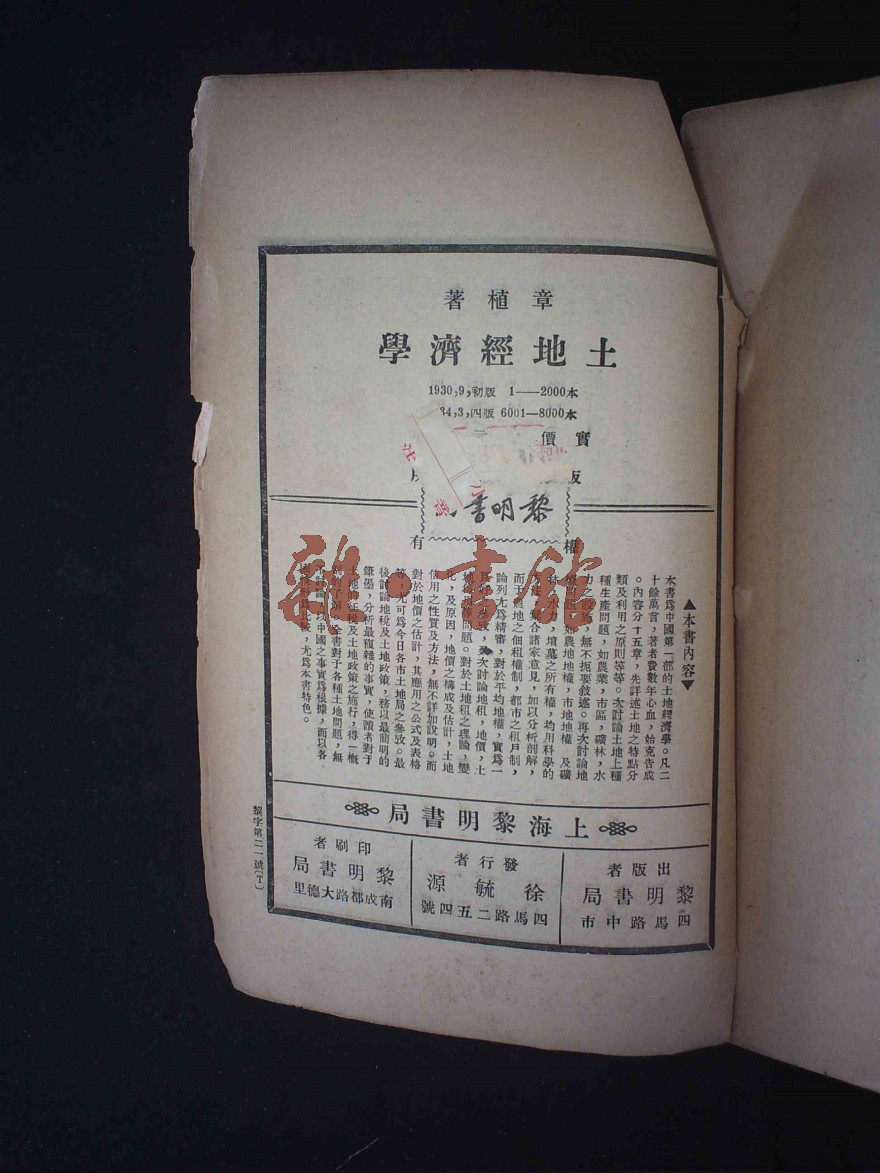 章植著
土地經濟學
1930,9,初版 1——2000本
34,3,四版 6001—8000本
實價
黎明書
權
有
▲本書內容▼
本書爲中國第一部的土地經濟學。凡二
十餘萬言,著者費數年心血,始克告成
。內容分十五章,先詳述土地之特點分
類及利用之原則等等。次討論土地上種
種生產問題,如農業,市區,礦林,水
力之,無不扼要敍述。再次討論地
農地地權,市地地權 及礦
林,水力,墳墓之所有權,均用科學的
合諸家意見,加以分析剖解,
而于農地之佃租權制,都市之租戶制,
論列尤爲精審,對於平均地權,實爲一
次討論地租,地價,土
問題。對於土地租之理論,變
化,及原因,地價之構成及估計,土地
信用之性質及方法,無不詳加說明。而
對於地價之估計,其應用之公式及表格
等,尤可爲今日各市土地局之參攷。最
後討論地稅及土地政策,務以最簡明的
筆墨,分析最複雜的事實,使讀者對于
土地的征稅及土地政策之施行,得一概
的了解。全書對于各種土地問題,無
不討論,以中國之事實爲根據,而以各
國,尤爲本書特色。
上海黎明書局
出版者
黎明書局
四馬路中市
發行者
徐毓源
四馬路二五四號
印刷者
黎明書局
南成都路大德里
黎字第二一號(T.)
雜·書館